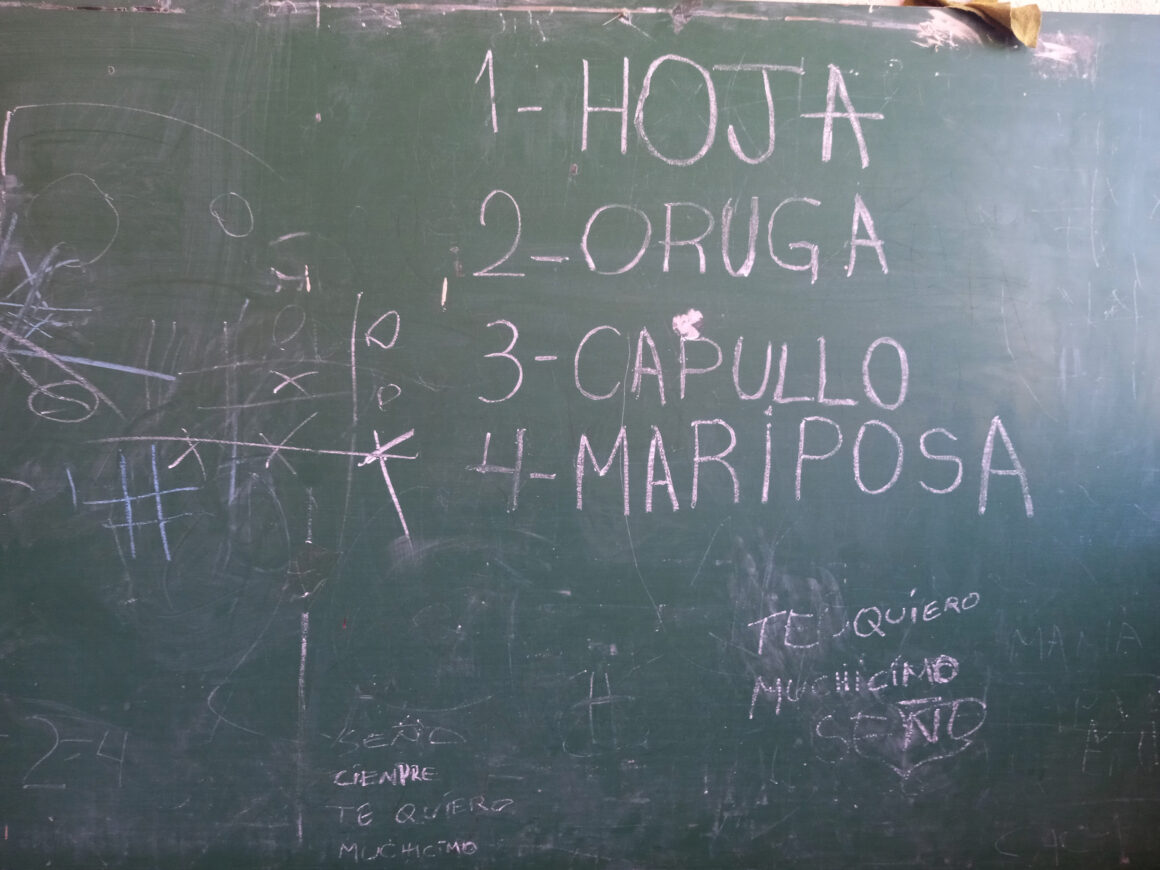 1- HOJA
2- ORUGA
3- CAPULLO
4- MARIPOSA
TE QUIERO
MUCHICÍMO
SEÑO
2-4
SEÑO
CIENPRE
TE QUIERO
MUCHICIMO
MAMA